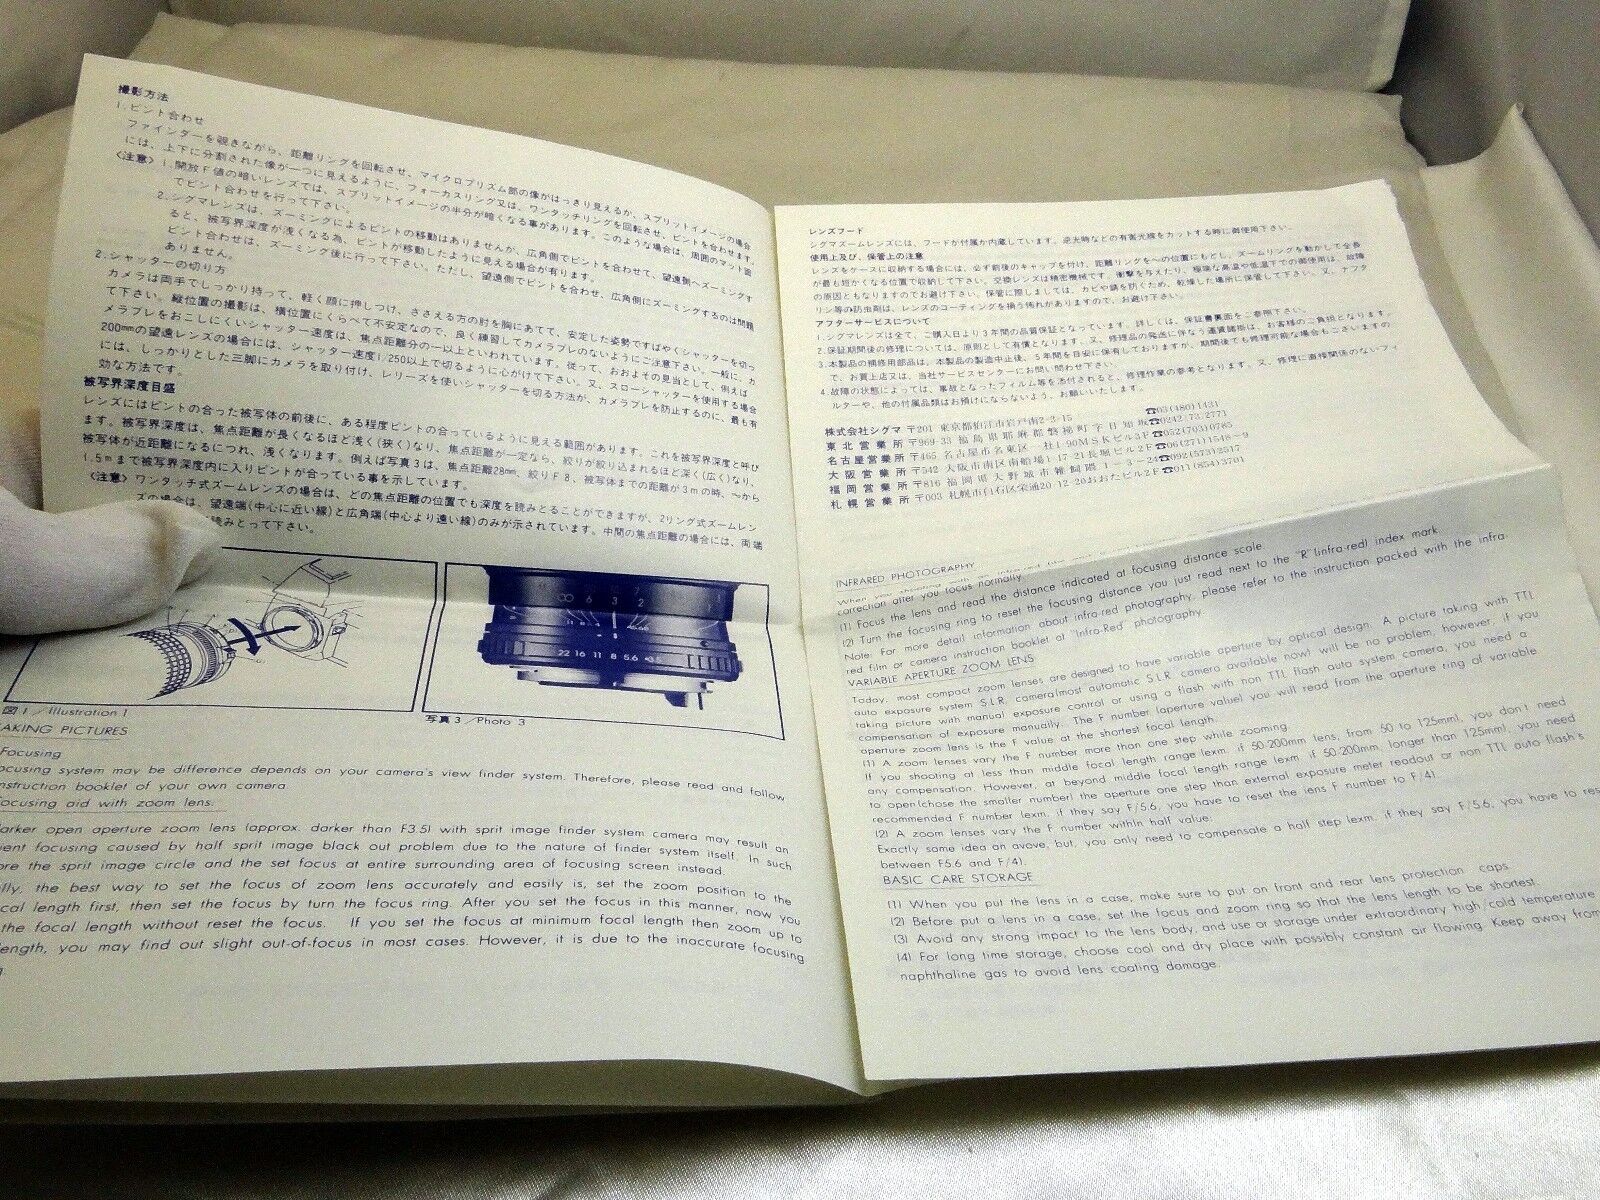 撮影方法
1.ピント合わせ
ファインダーを覗きながら、距離リングを回転させ、マイクロプリズム部の像がはっきり見えるか、スプリットイメージの場合
には、上下に分割された像が一つに見えるように、フォーカスリング又は、ワンタッチリングを回転させ、ピントを合わせます。
〈注意〉1.開放F値の暗いレンズでは、スプリットイメージの半分が暗くなる事があります。このような場合は、周囲のマット面
でピント合わせを行って下さい。
2.シグマレンズは、ズーミングによるピントの移動はありませんが、広角側でピントを合わせて、望遠側へズーミングす
ると、被写界深度が浅くなる為、ピントが移動したように見える場合が有ります。
ピント合わせは、ズーミング後に行って下さい。ただし、望遠側でピントを合わせ、広角側にズーミングするのは問題
ありません。
2.シャッターの切り方
カメラは両手でしっかり持って、軽く頭に押しつけ、ささえる方の肘を胸にあてて、安定した姿勢ですばやくシャッターを切っ
て下さい。縦位置の撮影は、横位置にくらべて不安定なので、良く練習してカメラブレのないようにご注意下さい。一般に、カ
メラブレをおこしにくいシャッター速度は、焦点距離分の一以上といわれています。従って、おおよその見当として、例えば
200mmの望遠レンズの場合には、シャッター速度1/250以上で切るように心がけて下さい。又、スローシャッターを使用する場合
には、しっかりとした三脚にカメラを取り付け、レリーズを使いシャッターを切る方法が、カメラブレを防止するのに、最も有
効な方法です。
被写界深度目盛
レンズにはピントの合った被写体の前後に、ある程度ピントの合っているように見える範囲があります。これを被写界深度と呼び
ます。被写界深度は、焦点距離が長くなるほど浅く(狭く)なり、焦点距離が一定なら、絞りが絞り込まれるほど深く(広く)なり、
被写体が近距離になるにつれ、浅くなります。例えば写真3は、焦点距離28mm、絞りF8、被写体までの距離が3mの時、〜から
1.5mまで被写界深度内に入りピントが合っている事を示しています。
〈注意〉ワンタッチ式ズームレンズの場合は、どの焦点距離の位置でも深度を読みとることができますが、2リング式ズームレン
ズの場合は、望遠端(中心に近い線)と広角端(中心より遠い線)のみが示されています。中間の焦点距離の場合には、両端
読みとって下さい。
∞ 6 3 2
22 16 11 8 5.6 3.5
図1/Illustration 1
写真3/Photo 3
AKING PICTURES
Focusing
ocusing system may be difference depends on your camera's view finder system. Therefore, please read and follow
nstruction booklet of your own camera
ocusing aid with zoom lens.
darker open aperture zoom lens (approx. darker than F3.5) with sprit image finder system camera may result an
ient focusing caused by half sprit image black out problem due to the nature of finder system itself. In such
ore the sprit image circle and the set focus at entire surrounding area of focusing screen instead.
lly, the best way to set the focus of zoom lens accurately and easily is, set the zoom position to the
cal length first, then set the focus by turn the focus ring. After you set the focus in this manner, now you
the focal length without reset the focus. If you set the focus at minimum focal length then zoom up to
length, you may find out slight out-of-focus in most cases. However, it is due to the inaccurate focusing
レンズフード
シグマズームレンズには、フードが付属か内蔵しています。逆光時などの有害光線をカットする時に御使用下さい。
使用上及び、保管上の注意
レンズをケースに収納する場合には、必ず前後のキャップを付け、距離リングを〜の位置にもどし、ズームリングを動かして全長
が最も短かくなる位置で収納して下さい。交換レンズは精密機械です。衝撃を与えたり、極端な高温や低温下での御使用は、故障
の原因ともなりますのでお避け下さい。保管に際しましては、カビや錆を防ぐため、乾燥した場所に保管して下さい。又、ナフタ
リン等の防虫剤は、レンズのコーティングを損う怖れがありますので、お避け下さい。
アフターサービスについて
1.シグマレンズは全て、ご購入日より3年間の品質保証となっています。詳しくは、保証書裏面をご参照下さい。
2.保証期間後の修理については、原則として有償となります。又、修理品の発送に伴なう運賃諸掛は、お客様のご負担となります。
3.本製品の補修用部品は、本製品の製造中止後、5年間を目安に保有しておりますが、期間後でも修理可能な場合もございますの
で、お買上店又は、当社サービスセンターにお問い合わせ下さい。
4.故障の状態によっては、事故となったフィルム等を添付されると、修理作業の参考となります。又、修理に直接関係のないフィ
ルターや、他の付属品類はお預けにならないよう、お願いいたします。
株式会社シグマ 〒201 東京都狛江市岩戸南2-3-15 ☎03(480)1431
東北営業所 〒969-33 福島県耶麻郡磐梯町字日知坂 ☎0242(73)2771
名古屋営業所 〒465 名古屋市名東区一社1-90MSKビル3F ☎052(703)0785
大阪営業所 〒542 大阪市南区南船場1-17-21長堀ビル2F ☎06(271)1548〜9
福岡営業所 〒816 福岡県大野城市雑餉隈1-3-24 ☎092(573)2517
札幌営業所 〒003 札幌市白石区栄通20-12-20おおたビル2F ☎011(854)3701
INFRARED PHOTOGRAPHY
When you shooting with
correction after you focus normally.
(1) Focus the lens and read the distance indicated at focusing distance scale.
(2) Turn the focusing ring to reset the focusing distance you just read next to the "R"(infra-red) index mark.
Note: For more detail information about infra-red photography, please refer to the instruction packed with the infra-
red film or camera instruction booklet at "Infra-Red" photography.
VARIABLE APERTURE ZOOM LENS
Today, most compact zoom lenses are designed to have variable aperture by optical design. A picture taking with TTL
auto exposure system S.L.R. camera(most automatic S.L.R. camera available now) will be no problem, however, if you
taking picture with manual exposure control or using a flash with non TTL flash auto system camera, you need a
compensation of exposure manually. The F number (aperture value) you will read from the aperture ring of variable
aperture zoom lens is the F value at the shortest focal length.
(1) A zoom lenses vary the F number more than one step while zooming.
If you shooting at less than middle focal length range (exm. if 50-200mm lens, from 50 to 125mm), you don't need
any compensation. However, at beyond middle focal length range (exm. if 50-200mm, longer than 125mm), you need
to open(chose the smaller number) the aperture one step than external exposure meter readout or non TTL auto flash's
recommended F number (exm. if they say F/5.6, you have to reset the lens F number to F/4).
(2) A zoom lenses vary the F number within half value.
Exactly same idea an avove, but, you only need to compensate a half step (exm. if they say F/5.6, you have to res
between F5.6 and F/4).
BASIC CARE STORAGE
(1) When you put the lens in a case, make sure to put on front and rear lens protection caps.
(2) Before put a lens in a case, set the focus and zoom ring so that the lens length to be shortest.
(3) Avoid any strong impact to the lens body, and use or storage under extraordinary high/cold temperature
(4) For long time storage, choose cool and dry place with possibly constant air flowing. Keep away from
naphthaline gas to avoid lens coating damage.